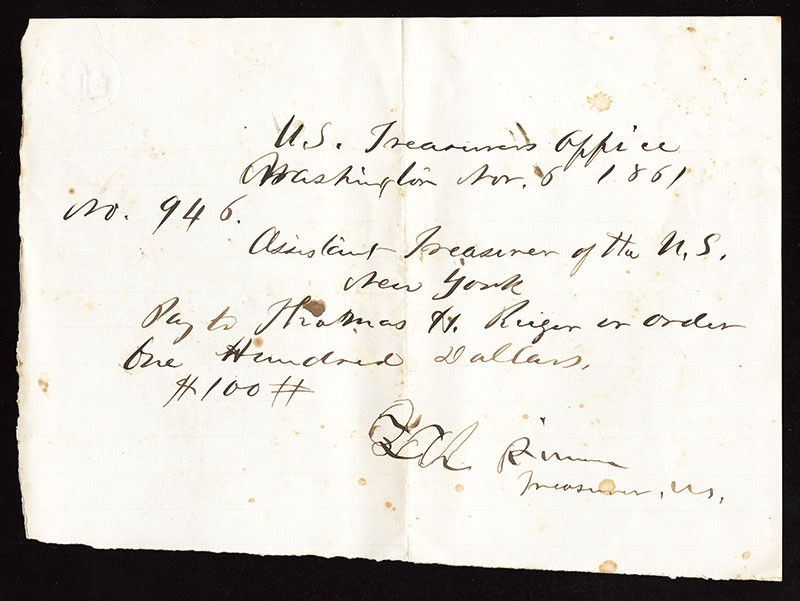 U.S. Treasurers Office
Washington Nov. 6 1861
No. 946.
Assistant Treasurer of the U.S.
New York
Pay to Thomas H. Rieger or order
One Hundred Dollars.
#100#
Treasurer, US,